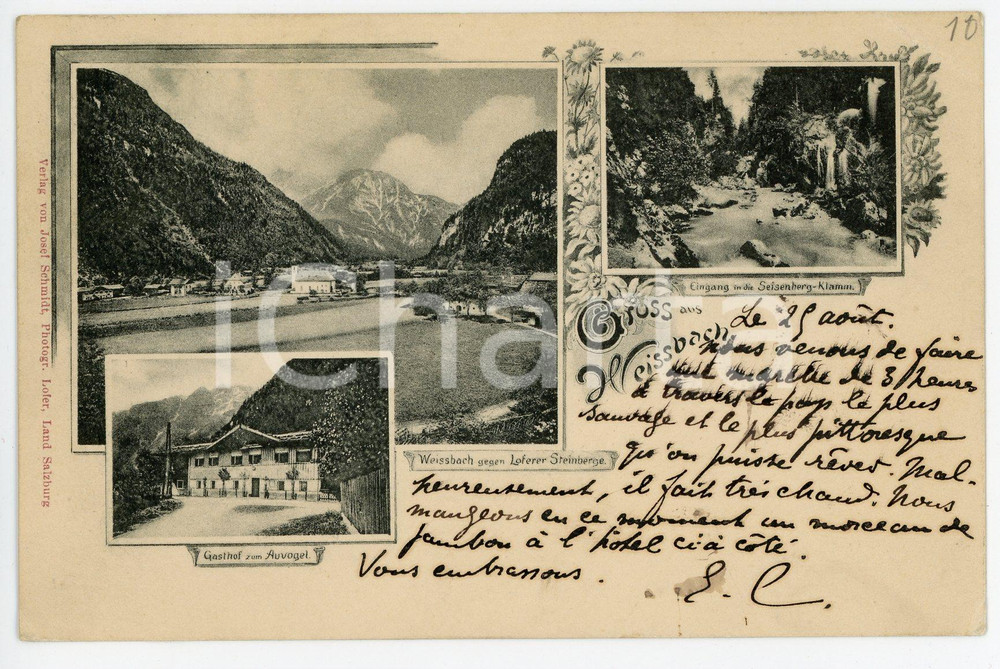 10
Verlag von Josef Schmidt, Photogr. Lofer, Land Salzburg
Eingang in die Seisenberg-Klamm.
Gruss aus
Weissbach
Weissbach gegen Loferer Steinberge.
Gasthof zum Auvogel.
iCharta
Le 25 août.
Nous venons de faire
une marche de 3 heures
à travers le pays le plus
sauvage et le plus pittoresque
qu'on puisse rêver. Mal-
heureusement, il fait très chaud. Nous
mangeons en ce moment un morceau de
jambon à l'hôtel ci à côté.
Vous embrassons.
E. C.